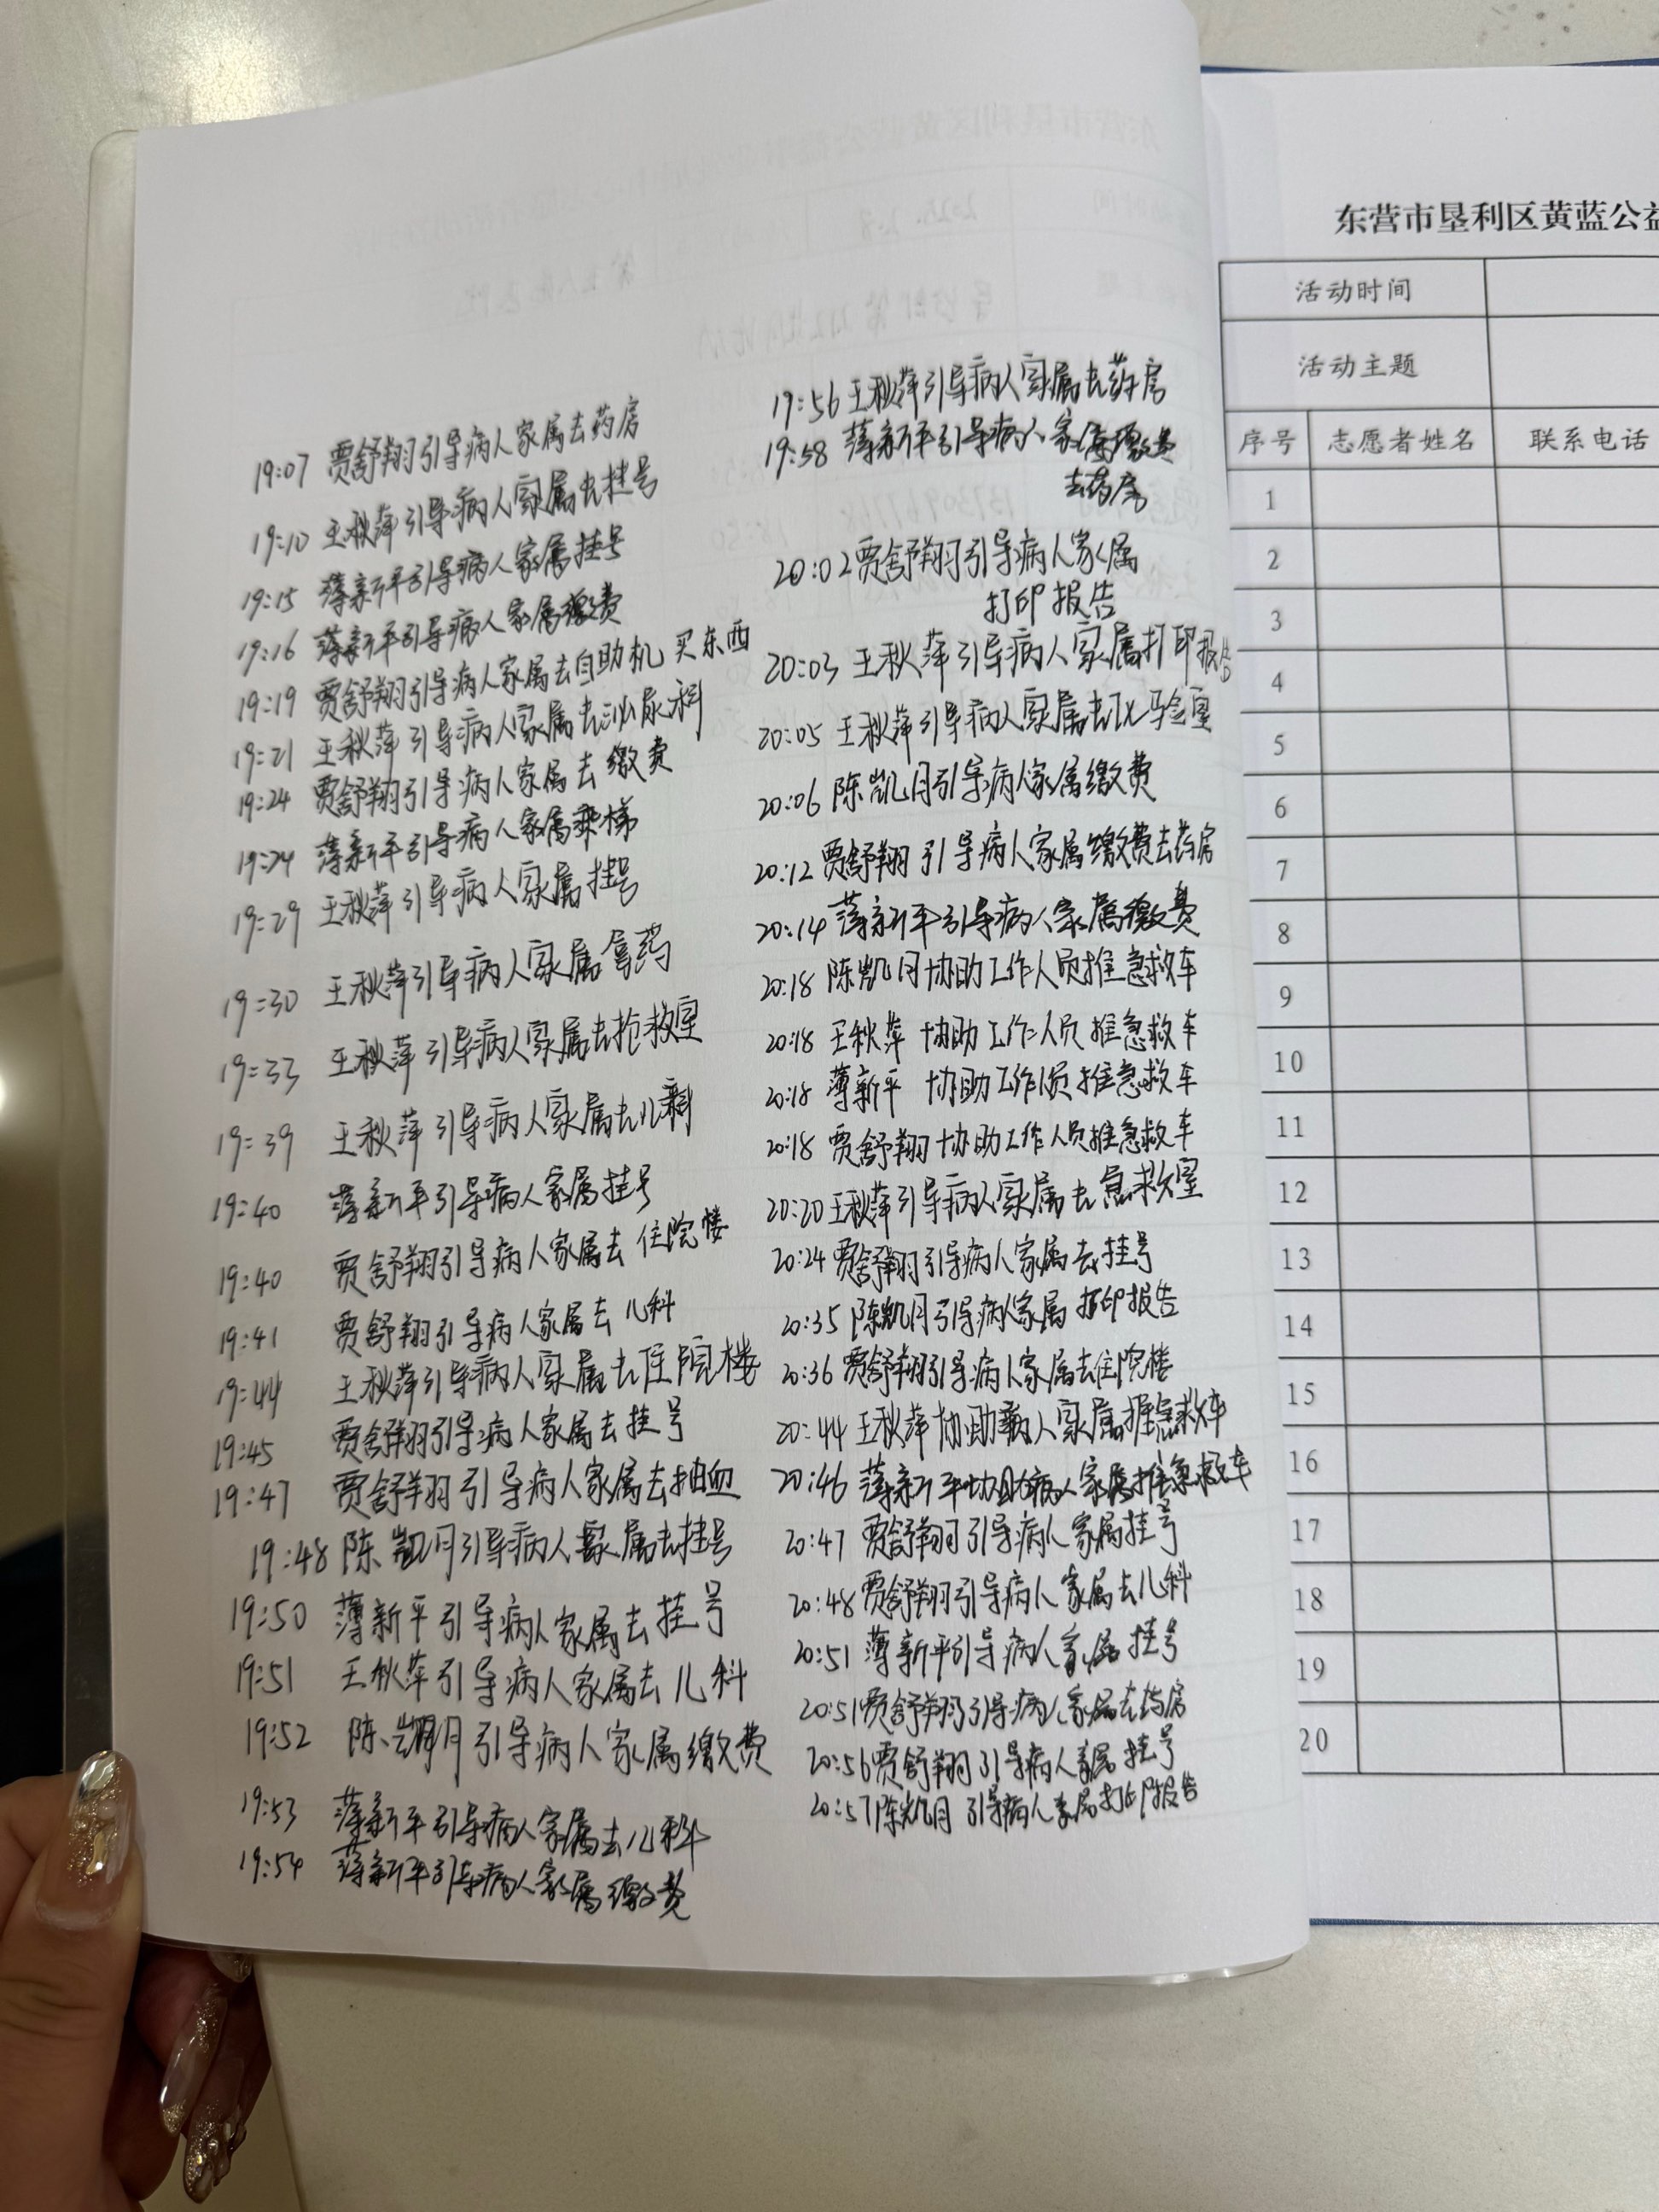 19:07 贾舒翔引导病人家属去药房
19:10 王秋萍引导病人家属去挂号
19:15 薄新平引导病人家属挂号
19:16 薄新平引导病人家属缴费
19:19 贾舒翔引导病人家属去自助机买东西
19:21 王秋萍引导病人家属去泌尿科
19:24 贾舒翔引导病人家属去缴费
19:24 薄新平引导病人家属乘梯
19:29 王秋萍引导病人家属挂号
19:30 王秋萍引导病人家属拿药
19:33 王秋萍引导病人家属去抢救室
19:39 王秋萍引导病人家属去儿科
19:40 薄新平引导病人家属挂号
19:40 贾舒翔引导病人家属去住院楼
19:41 贾舒翔引导病人家属去儿科
19:44 王秋萍引导病人家属去住院楼
19:45 贾舒翔引导病人家属去挂号
19:47 贾舒翔引导病人家属去抽血
19:48 陈凯月引导病人家属去挂号
19:50 薄新平引导病人家属去挂号
19:51 王秋萍引导病人家属去儿科
19:52 陈凯月引导病人家属缴费
19:53 薄新平引导病人家属去儿科
19:54 薄新平引导病人家属缴费
19:56 王秋萍引导病人家属去药房
19:58 薄新平引导病人家属缴费
去药房
20:02 贾舒翔引导病人家属
打印报告
20:03 王秋萍引导病人家属打印报告
20:05 王秋萍引导病人家属去化验室
20:06 陈凯月引导病人家属缴费
20:12 贾舒翔引导病人家属缴费去药房
20:14 薄新平引导病人家属缴费
20:18 陈凯月协助工作人员推急救车
20:18 王秋萍协助工作人员推急救车
20:18 薄新平协助工作人员推急救车
20:18 贾舒翔协助工作人员推急救车
20:20 王秋萍引导病人家属去急救室
20:24 贾舒翔引导病人家属去挂号
20:35 陈凯月引导病人家属打印报告
20:36 贾舒翔引导病人家属去住院楼
20:44 王秋萍协助病人家属推急救车
20:46 薄新平协助病人家属推急救车
20:47 贾舒翔引导病人家属挂号
20:48 贾舒翔引导病人家属去儿科
20:51 薄新平引导病人家属挂号
20:51 贾舒翔引导病人家属去药房
20:56 贾舒翔引导病人家属挂号
20:57 陈凯月引导病人家属打印报告
东营市垦利区黄蓝公益
活动时间
活动主题
序号 志愿者姓名 联系电话
1
2
3
4
5
6
7
8
9
10
11
12
13
14
15
16
17
18
19
20